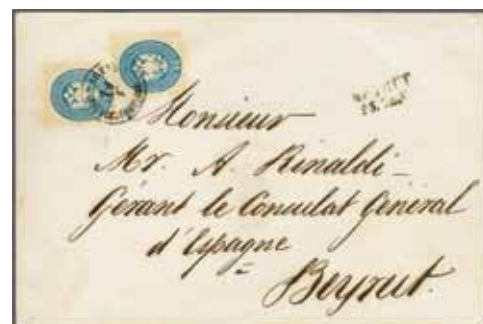 Monsieur
Mr. A. Rinaldi
Gérant le Consulat Général
d'Espagne
Beyrut.